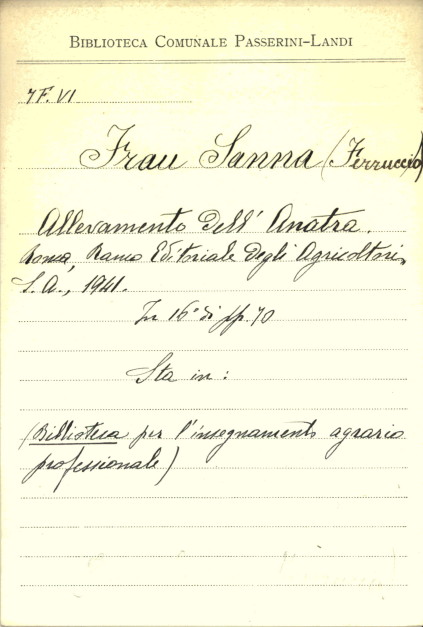 BIBLIOTECA COMUNALE PASSERINI-LANDI
7F.VI
Frau Sanna (Ferruccio)
Allevamento dell' Anatra.
Roma, Ramo Editoriale degli Agricoltori,
S.A., 1941.
In 16° di pp. 70
Sta in:
(Biblioteca per l'insegnamento agrario
professionale)